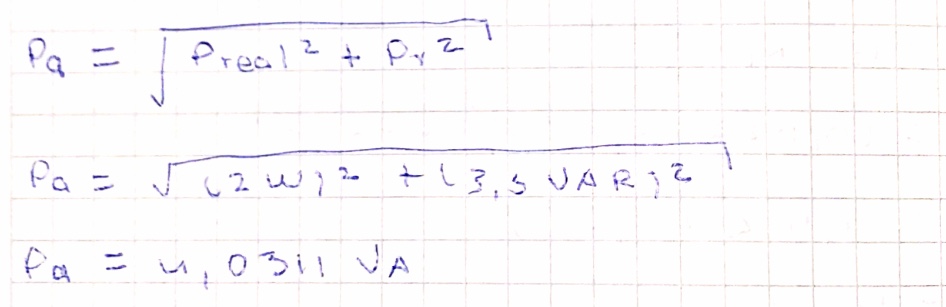 Pa = √(Preal² + Pr²)
Pa = √((2W)² + (3,5 VAR)²)
Pa = 4,0311 VA